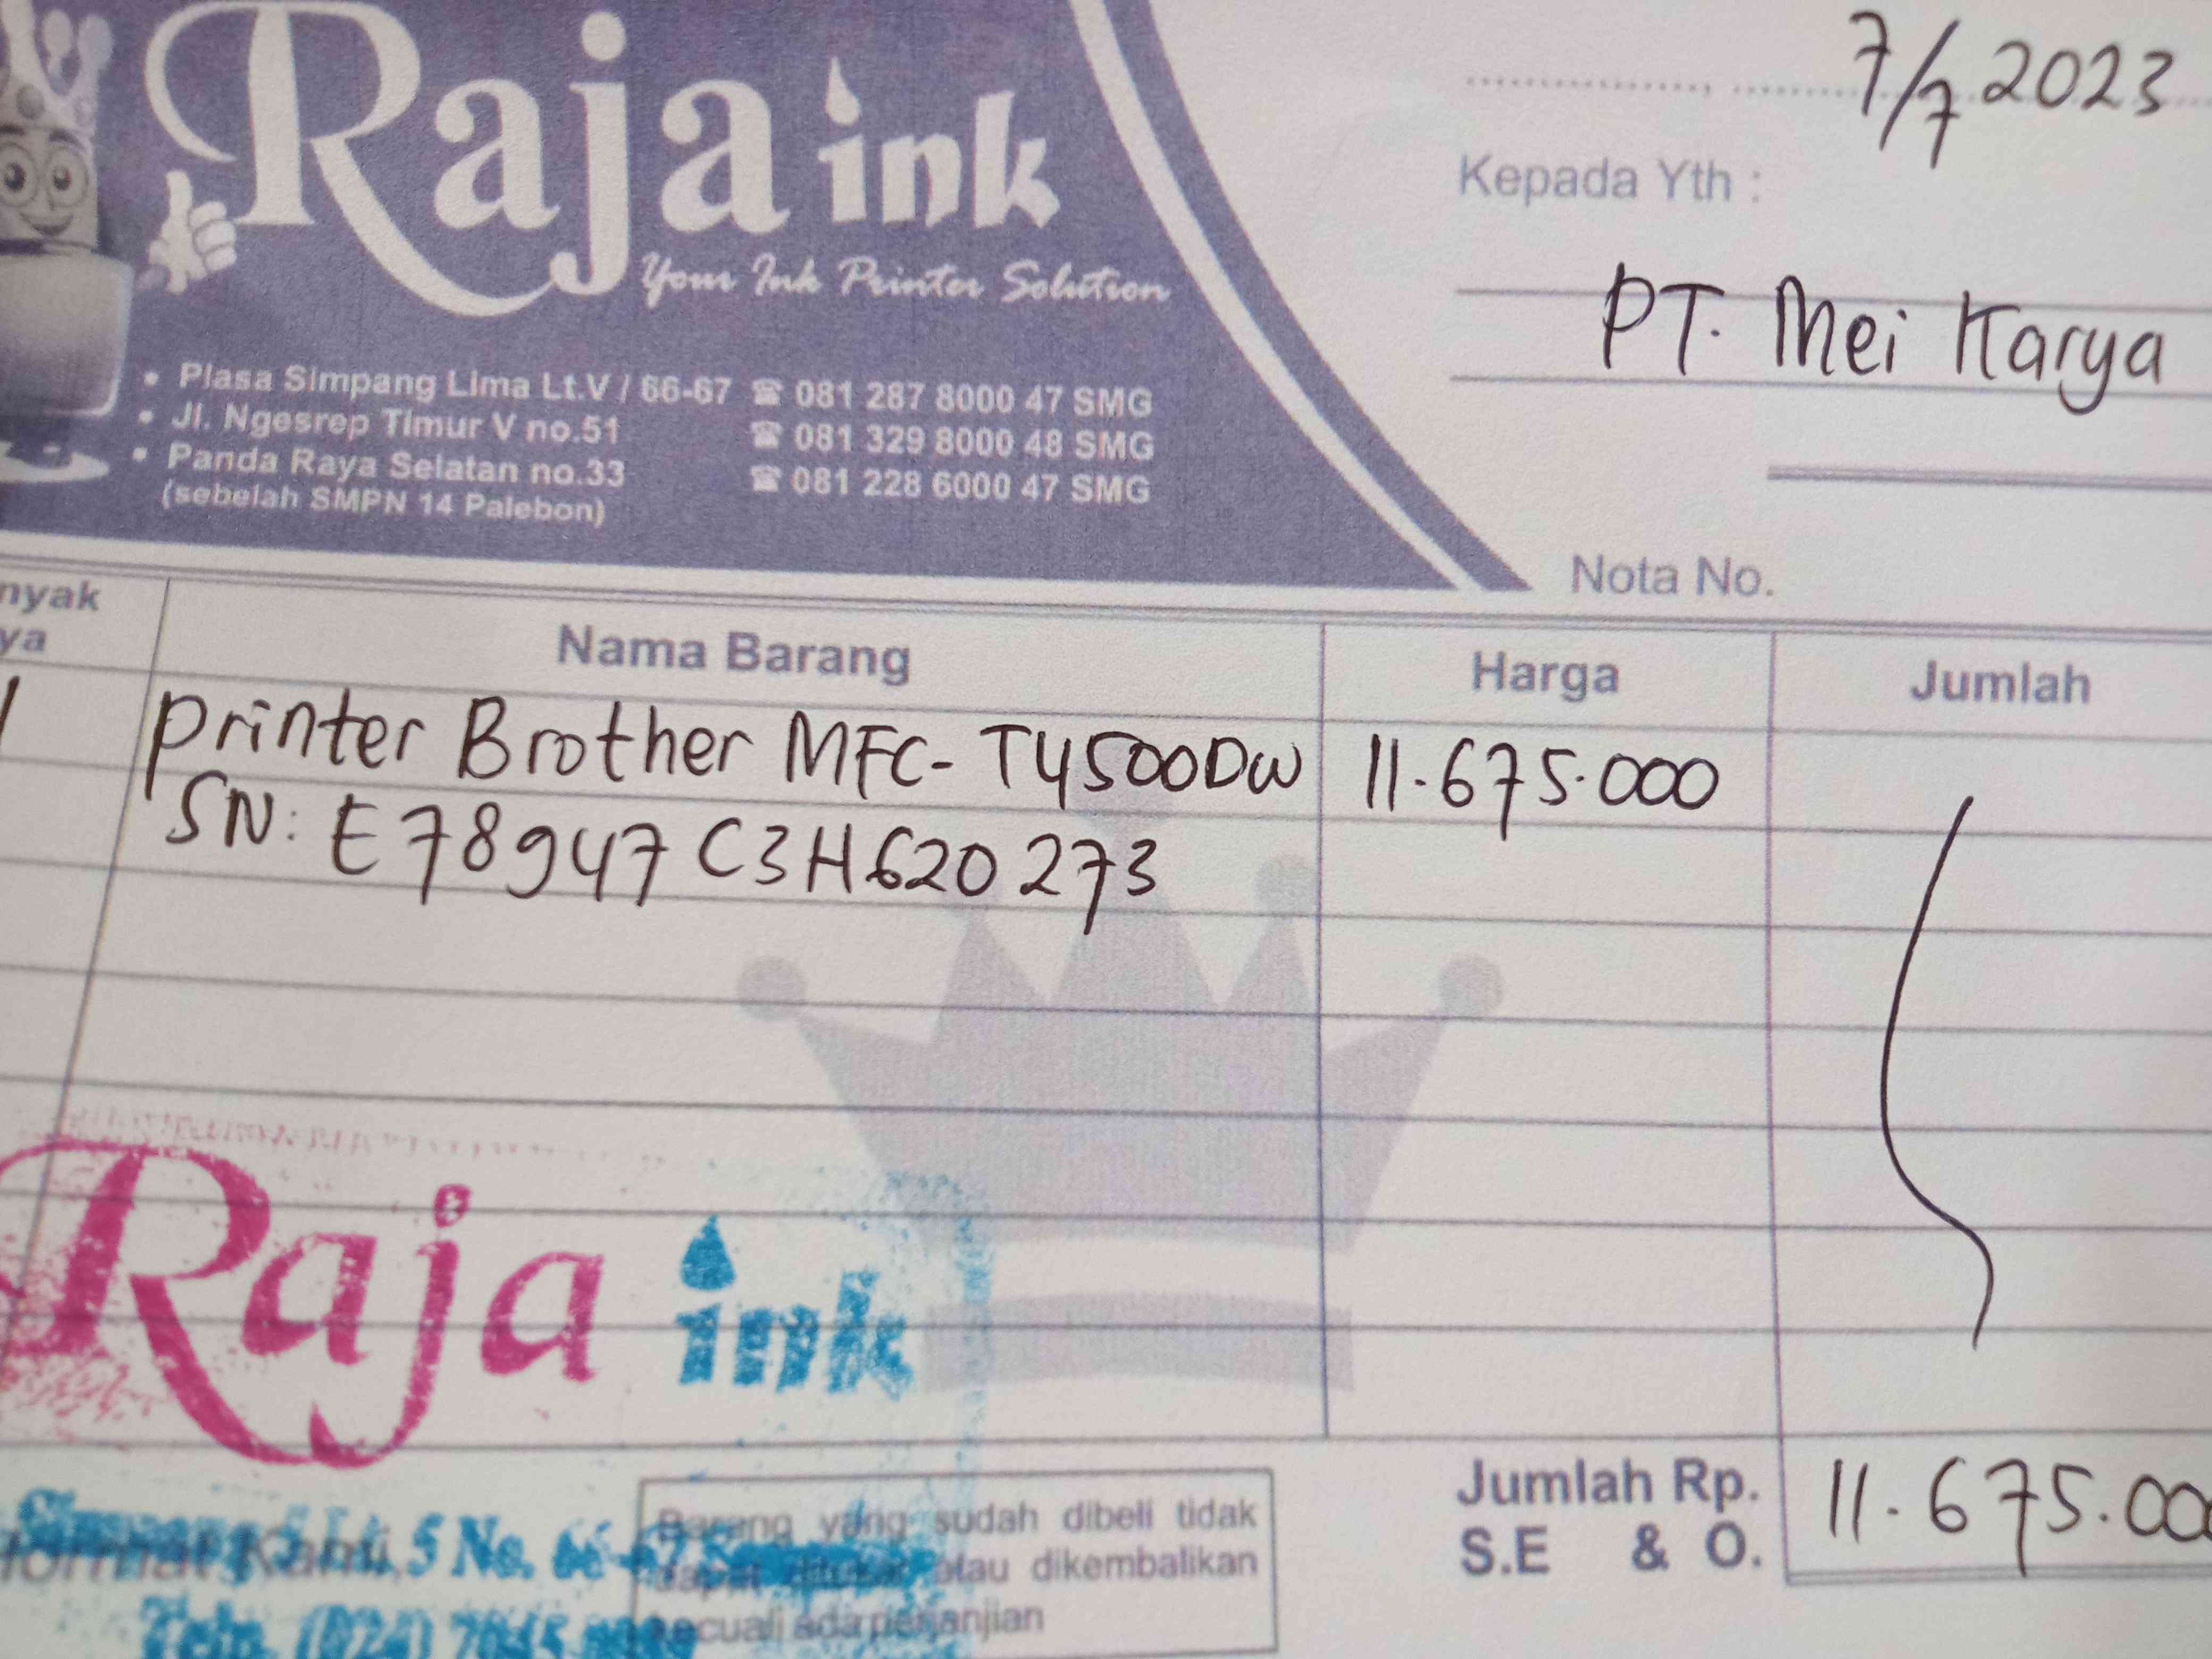 Raja ink
Your Ink Printer Solution
• Plasa Simpang Lima Lt.V / 66-67 ☎ 081 287 8000 47 SMG
• Jl. Ngesrep Timur V no.51 ☎ 081 329 8000 48 SMG
• Panda Raya Selatan no.33 ☎ 081 228 6000 47 SMG
(sebelah SMPN 14 Palebon)
7/7 2023
Kepada Yth :
PT. Mei Karya
Nota No.
nyak
ya
Nama Barang Harga Jumlah
1 Printer Brother MFC-T4500DW 11.675.000
SN: E78947C3H620273
Raja ink
5 No. 66-67
Telp. (024)
Barang yang sudah dibeli tidak
dapat ditukar atau dikembalikan
kecuali ada perjanjian
Jumlah Rp. 11.675.00
S.E & O.